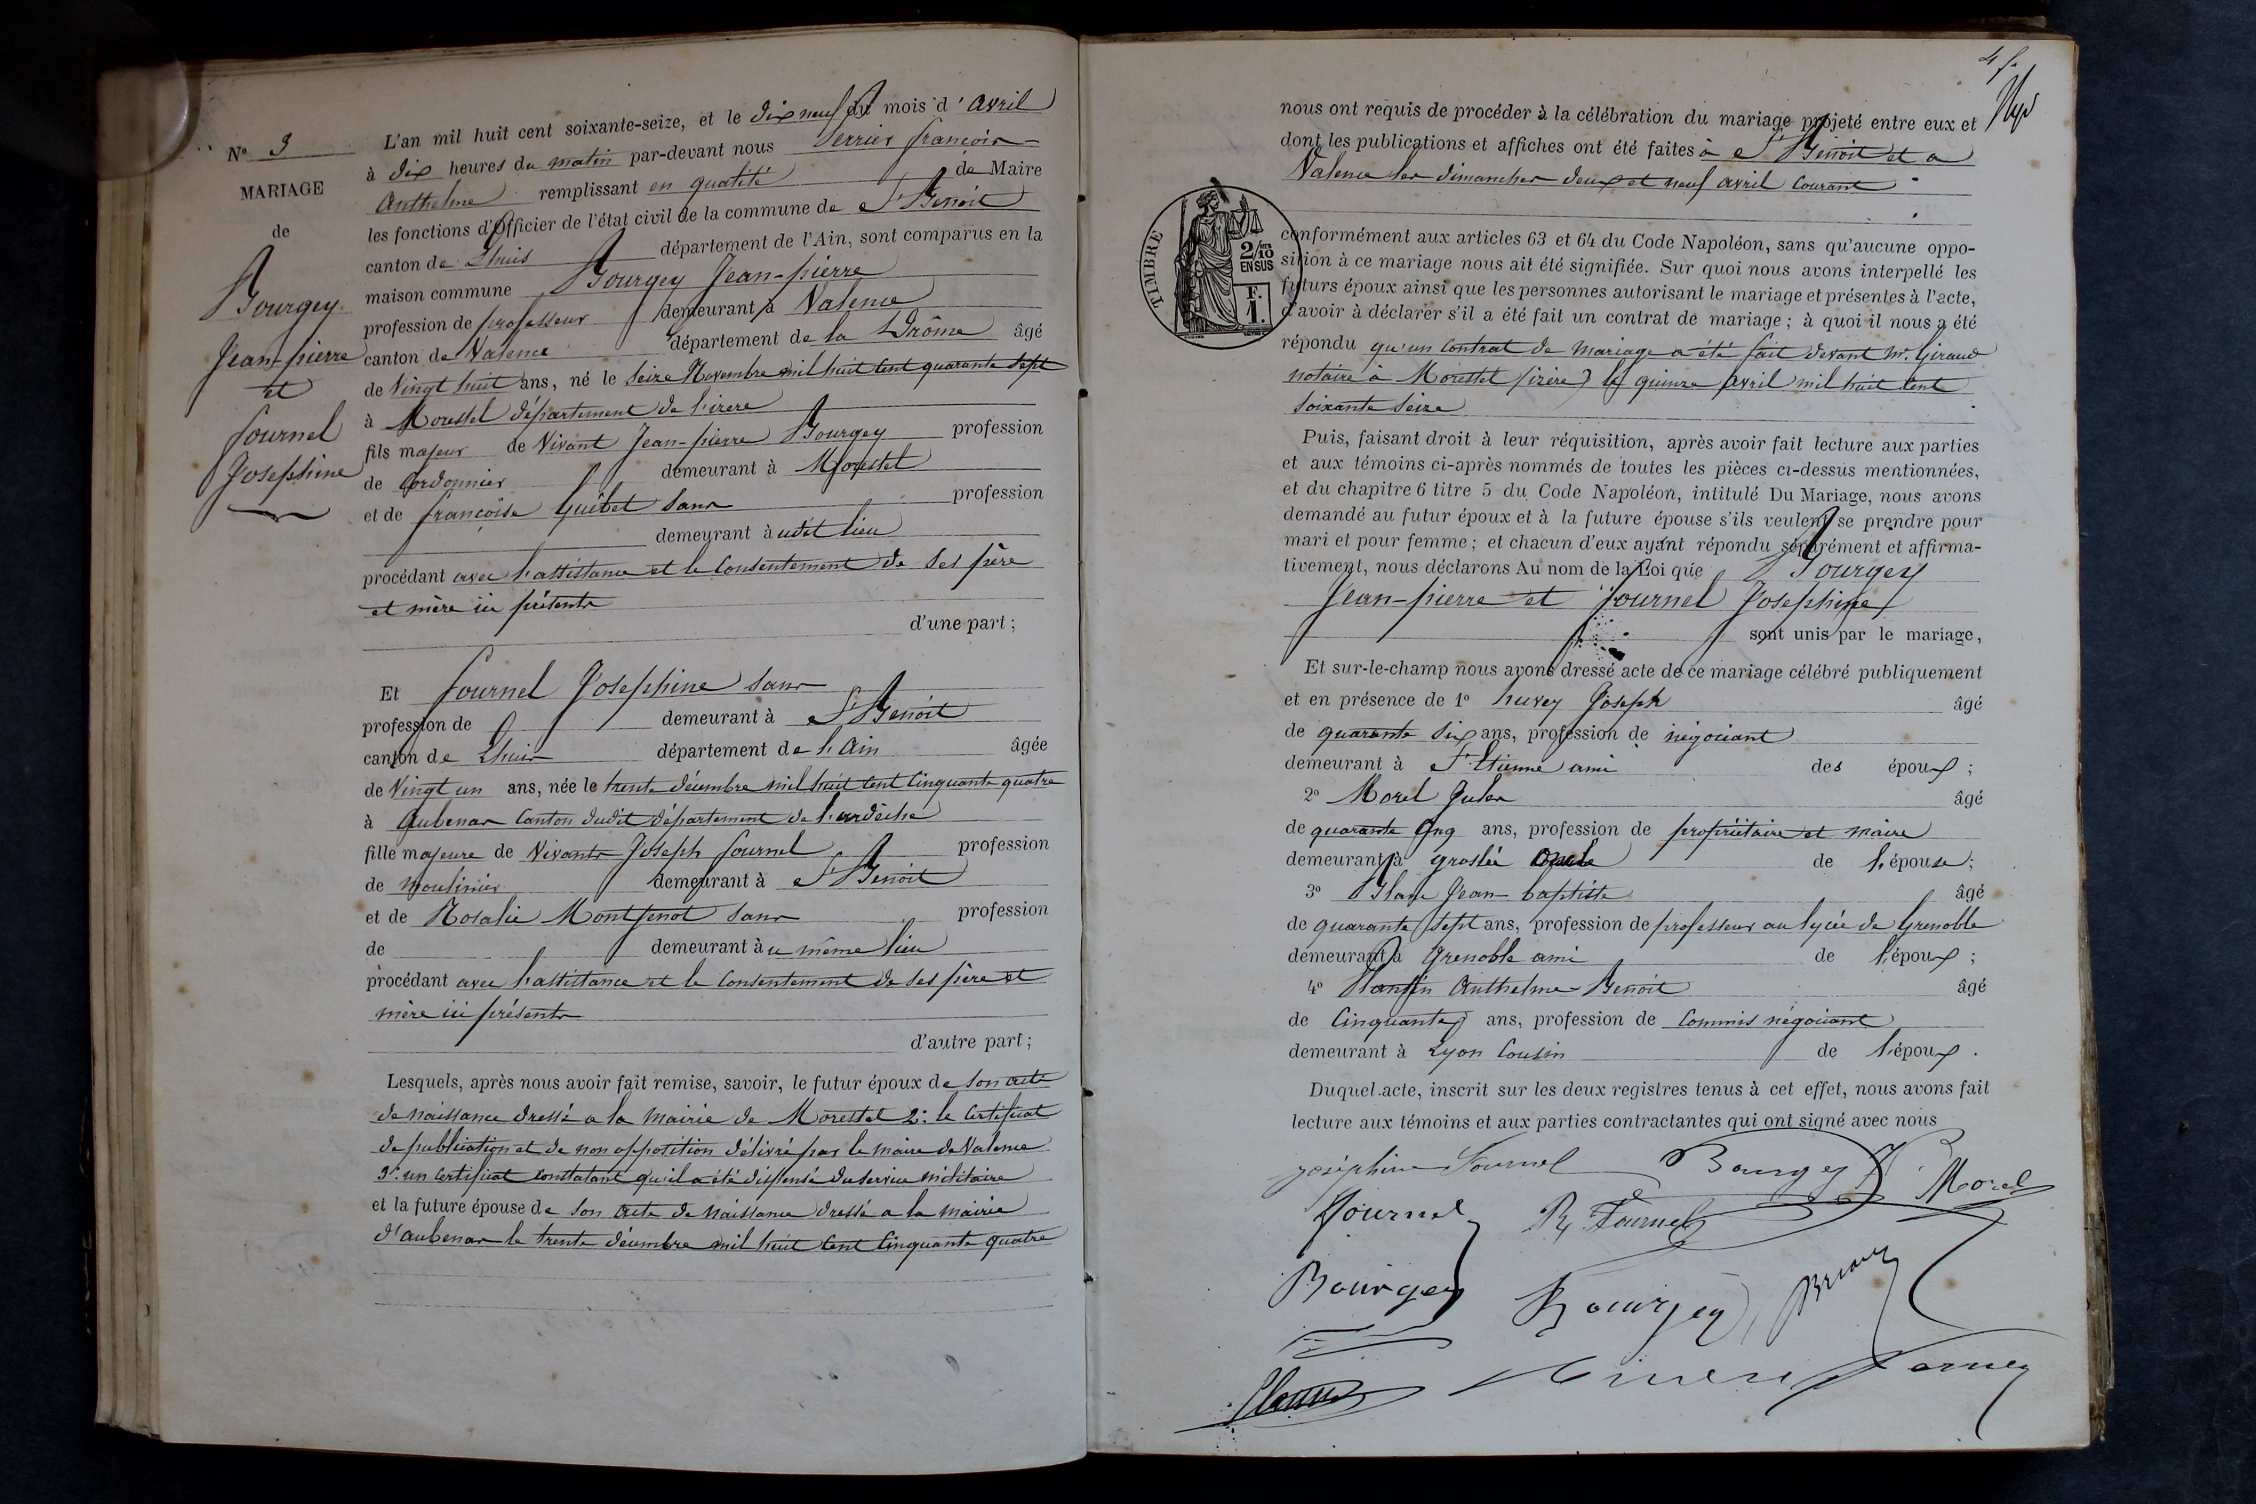 N° 3
MARIAGE
de
Bourgey
Jean-pierre
et
fournel
Josephine
L'an mil huit cent soixante-seize, et le dix neuf du mois d'avril
à dix heures du matin par-devant nous Perrier françois
Anthelme remplissant en qualité de Maire
les fonctions d'Officier de l'état civil de la commune de St Benoit
canton de Lhuis département de l'Ain, sont comparus en la
maison commune Bourgey Jean-pierre
profession de professeur demeurant à Valence
canton de Valence département de la Drôme âgé
de Vingt huit ans, né le seize Novembre mil huit cent quarante sept
à Morestel département de l'isere
fils majeur de Vivant Jean-pierre Bourgey profession
de Cordonnier demeurant à Morestel
et de françoise Guibet sans profession
demeurant à udit lieu
procédant avec l'assistance et le Consentement de ses père
et mère ici présents
d'une part ;
Et fournel Josephine sans
profession de demeurant à St Benoit
canton de Lhuis département de l'Ain âgée
de Vingt un ans, née le trente décembre mil huit cent cinquante quatre
à Aubenas Canton dudit département de l'ardèche
fille majeure de Vivants Joseph fournel profession
de moulinier demeurant à St Benoit
et de Rosalie Montfenot sans profession
de demeurant à u même lieu
procédant avec l'assistance et le Consentement de ses père et
mère ici présents
d'autre part ;
Lesquels, après nous avoir fait remise, savoir, le futur époux de son acte
de naissance dressé a la mairie de Morestel 2° le Certificat
de publication et de non opposition délivré par le maire de Valence
3° un Certificat constatant qu'il a été dispensé du service militaire
et la future épouse de son acte de naissance dressé a la mairie
d'aubenas le trente décembre mil huit cent cinquante quatre
nous ont requis de procéder à la célébration du mariage projeté entre eux et
dont les publications et affiches ont été faites à St Benoit et a
Valence les dimanches deux et neuf avril Courant
TIMBRE
2/10
EN SUS
F.
1.
conformément aux articles 63 et 64 du Code Napoléon, sans qu'aucune oppo-
sition à ce mariage nous ait été signifiée. Sur quoi nous avons interpellé les
futurs époux ainsi que les personnes autorisant le mariage et présentes à l'acte,
d'avoir à déclarer s'il a été fait un contrat de mariage ; à quoi il nous a été
répondu qu'un Contrat de Mariage a été fait devant Mr. Giraud
notaire à Morestel (isère) le quinze avril mil huit cent
soixante seize
Puis, faisant droit à leur réquisition, après avoir fait lecture aux parties
et aux témoins ci-après nommés de toutes les pièces ci-dessus mentionnées,
et du chapitre 6 titre 5 du Code Napoléon, intitulé Du Mariage, nous avons
demandé au futur époux et à la future épouse s'ils veulent se prendre pour
mari et pour femme ; et chacun d'eux ayant répondu séparément et affirma-
tivement, nous déclarons Au nom de la Loi que Bourgey
Jean-pierre et fournel Josephine
sont unis par le mariage,
Et sur-le-champ nous avons dressé acte de ce mariage célébré publiquement
et en présence de 1° huvey Joseph âgé
de quarante six ans, profession de négociant
demeurant à St Etienne ami des époux ;
2° Morel Jules âgé
de quarante cinq ans, profession de propriétaire et maire
demeurant à groslée oncle de l'épouse ;
3° Blanc Jean-baptiste âgé
de quarante sept ans, profession de professeur au lycée de Grenoble
demeurant à Grenoble ami de l'époux ;
4° Anthelme-Benoit âgé
de Cinquante ans, profession de Commis négociant
demeurant à Lyon Cousin de l'époux .
Duquel acte, inscrit sur les deux registres tenus à cet effet, nous avons fait
lecture aux témoins et aux parties contractantes qui ont signé avec nous
joséphine Fournel Bourgey J. Morel
fournel R. Fournel
Bourgey Bourgey